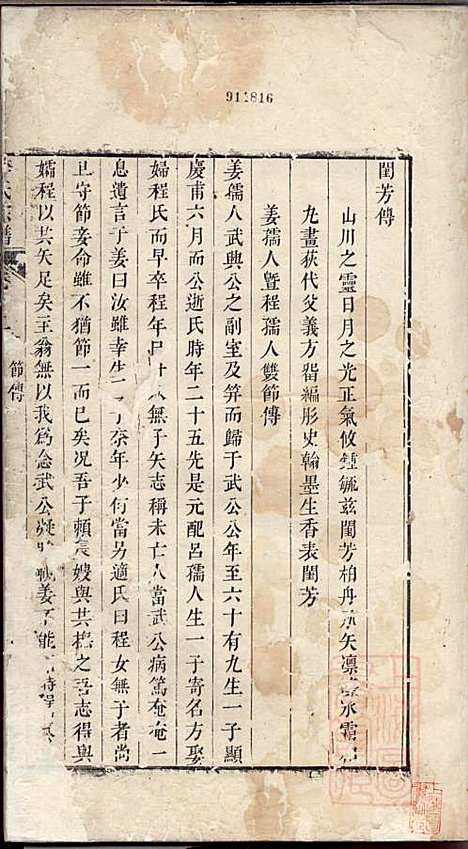 911816
閨芳傳
山川之靈日月之光正氣攸鍾毓茲閨芳柏舟永矢凛
九畫荻代父義方畱編彤史翰墨生香表閨芳
姜孺人暨程孺人雙節傳
姜孺人武興公之副室及笄而歸于武公公年至六十有九生一子顯
慶甫六月而公逝氏時年二十五先是元配呂孺人生一子寄名方娶
婦程氏而早卒程年
無子矢志稱未亡人當武公病篤奄奄一
息遺言于姜曰汝雖幸生一子奈年少何當另適氏曰程女無子者尚
且守節妾命雖不猶節一而已矣况吾子賴長嫂與共撫之吾志得與
孀程以共矢足矣主翁無以我爲念武公凝
姜不能
節傳